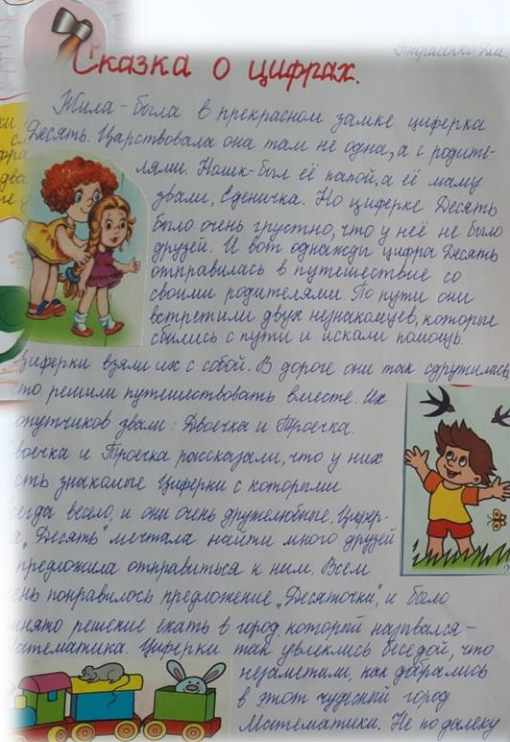 Сказка о цифрах.
Жила-была в прекрасном замке циферка
Десять. Царствовала она там не одна, а с родите-
лями. Нолик-был её папой, а её маму
звали, Еденичка. Но циферке Десять
было очень грустно, что у неё не было
друзей. И вот однажды цифра Десять
отправилась в путешествие со
своими родителями. По пути они
встретили двух незнакомцев, которые
сбились с пути и искали помощь.
Циферки взяли их с собой. В дороге они так сдружились,
то решили путешествовать вместе. Их
опутчиков звали: Двоечка и Троечка.
Двоечка и Троечка рассказали, что у них
сть знакомые Циферки с которыми
сегда весело, и они очень дружелюбные. Цифер-
а „Десять" мечтала найти много друзей
предложила отправиться к ним. Всем
ень понравилось предложение „Десяточки", и было
инято решение ехать в город, который назывался-
атематика. Циферки так увлеклись беседой, что
незаметили, как добрались
в этот чудесный город
Математики. Не по далеку